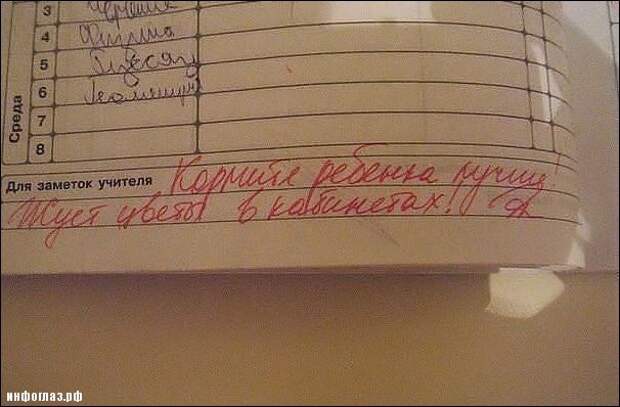 Среда
3 Черчение
4 Физика
5
6 Геометрия
7
8
Для заметок учителя Кормите ребенка лучше!
Жует цветы в кабинетах!
инфоглаз.рф